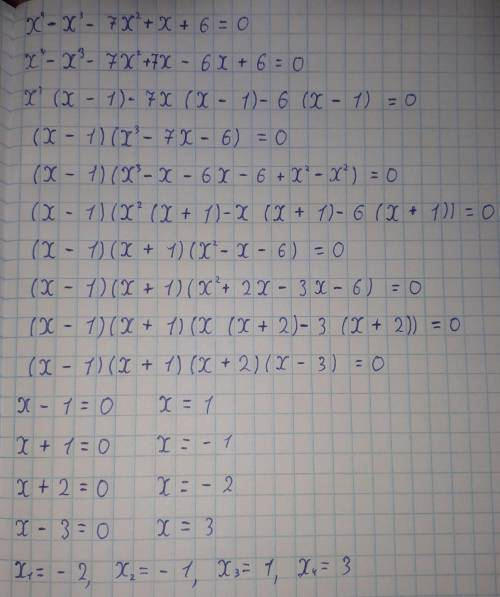 x⁴ - x³ - 7x² + x + 6 = 0
x⁴ - x³ - 7x² + 7x - 6x + 6 = 0
x³ (x - 1) - 7x (x - 1) - 6 (x - 1) = 0
(x - 1)(x³ - 7x - 6) = 0
(x - 1)(x³ - x - 6x - 6 + x² - x²) = 0
(x - 1)(x² (x + 1) - x (x + 1) - 6 (x + 1)) = 0
(x - 1)(x + 1)(x² - x - 6) = 0
(x - 1)(x + 1)(x² + 2x - 3x - 6) = 0
(x - 1)(x + 1)(x (x + 2) - 3 (x + 2)) = 0
(x - 1)(x + 1)(x + 2)(x - 3) = 0
x - 1 = 0 x = 1
x + 1 = 0 x = - 1
x + 2 = 0 x = - 2
x - 3 = 0 x = 3
x₁ = - 2, x₂ = - 1, x₃ = 1, x₄ = 3